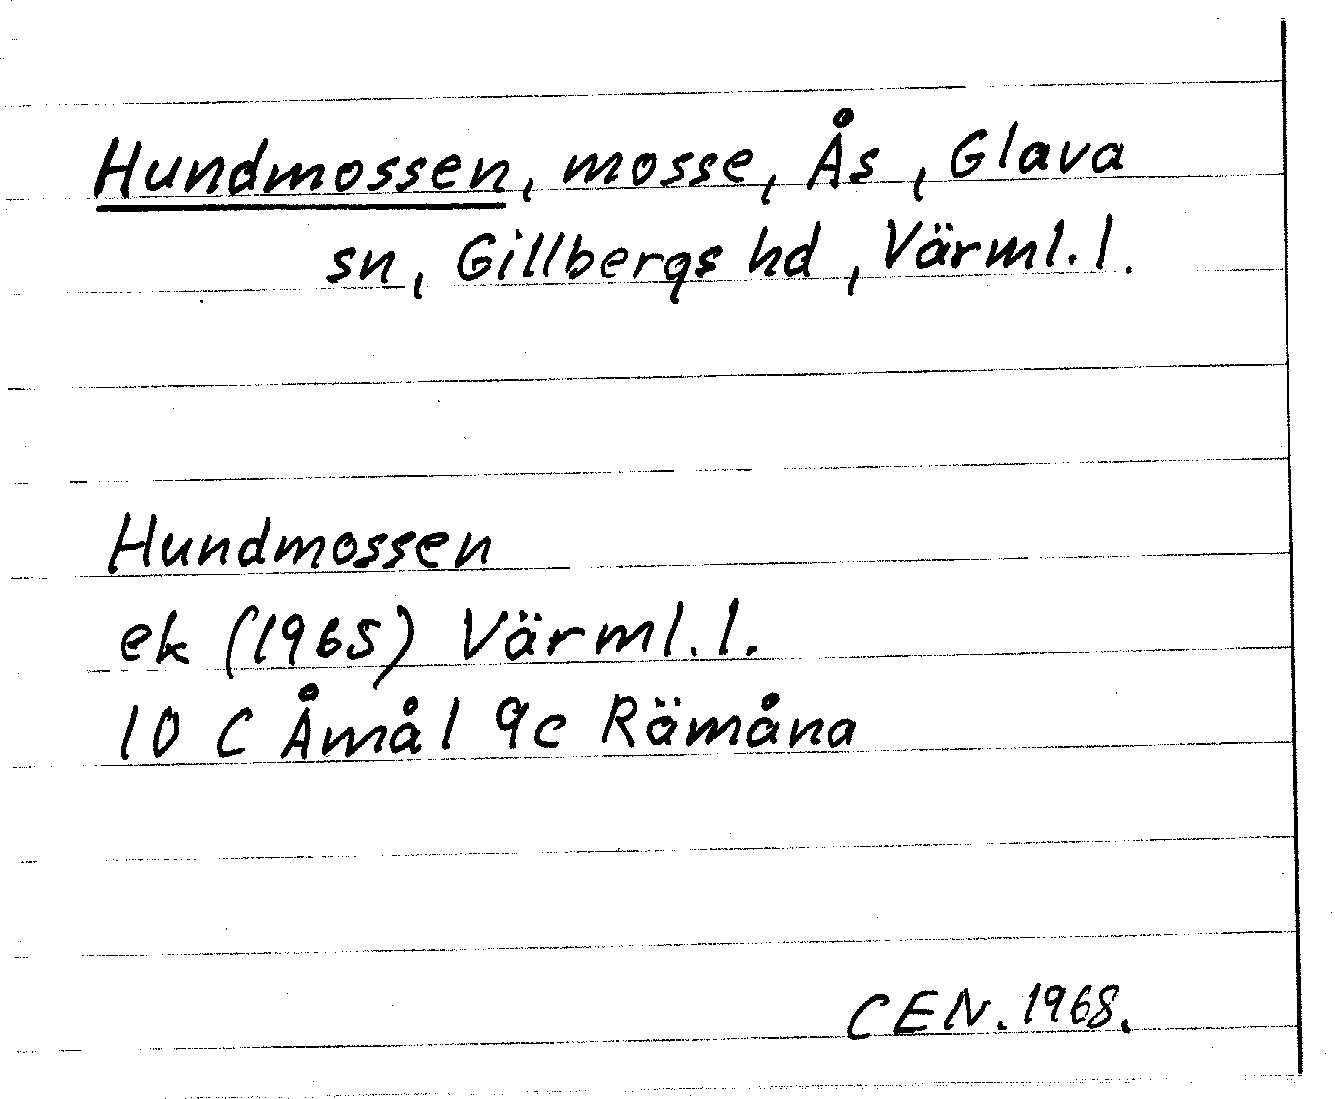 Hundmossen, mosse, Ås, Glava
sn, Gillbergs hd, Värml. l.
Hundmossen
ek (1965) Värml. l.
10 C Åmål 9c Rämåna
CEN. 1968.